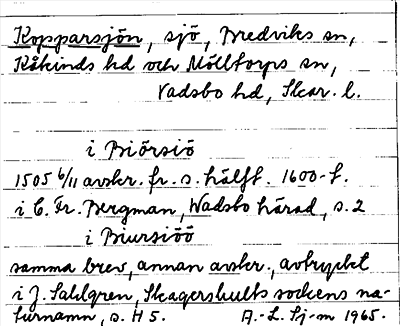 Kopparsjön, sjö, Bredviks sn,
Kåkinds hd och Mölltorps sn,
Vadsbo hd, Skar. l.
i Biörsiö
1505 6/11 avskr. fr. s. hälft. 1600-t.
i C. Fr. Bergman, Wadsbo härad, s. 2
i Biursiöö
samma brev, annan avskr., avtryckt
i J. Sahlgren, Skagershults sockens na-
turnamn, s. H 5. A.-L. Sj-m 1965.